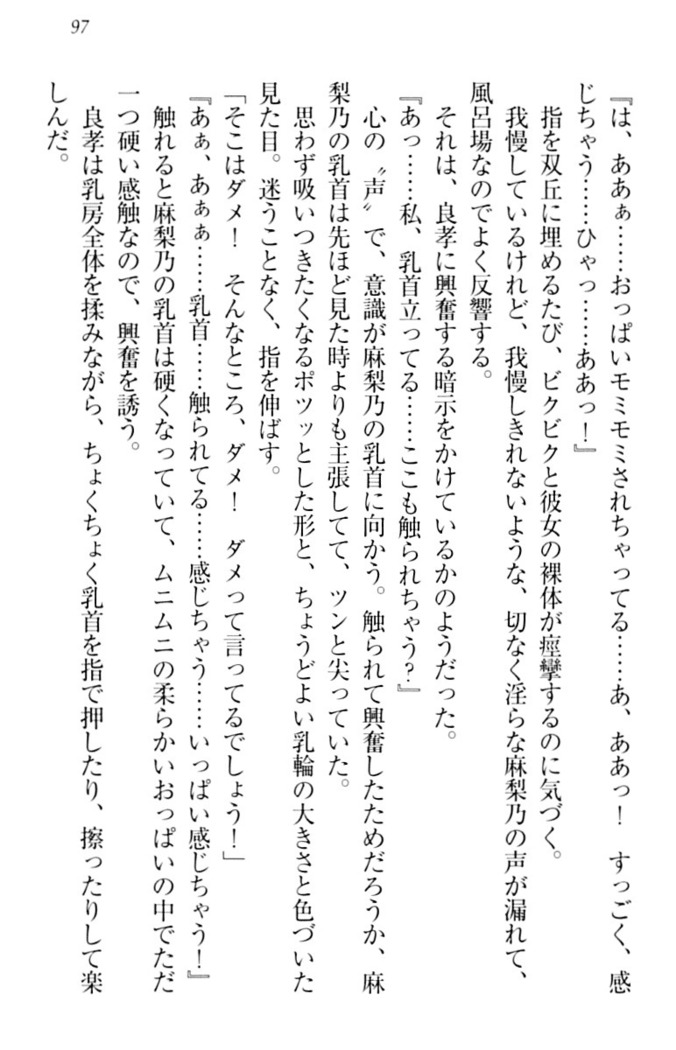 97
『は、ああぁ……おっぱいモミモミされちゃってる……あ、ああっ！　すっごく、感
じちゃう……ひゃっ……ああっ！』
指を双丘に埋めるたび、ビクビクと彼女の裸体が痙攣するのに気づく。
我慢しているけれど、我慢しきれないような、切なく淫らな麻梨乃の声が漏れて、
風呂場なのでよく反響する。
それは、良孝に興奮する暗示をかけているかのようだった。
『あっ……私、乳首立ってる……ここも触られちゃう？』
心の〝声〟で、意識が麻梨乃の乳首に向かう。触られて興奮したためだろうか、麻
梨乃の乳首は先ほど見た時よりも主張してて、ツンと尖っていた。
思わず吸いつきたくなるポツッとした形と、ちょうどよい乳輪の大きさと色づいた
見た目。迷うことなく、指を伸ばす。
「そこはダメ！　そんなところ、ダメ！　ダメって言ってるでしょう！」
『あぁ、あぁぁ……乳首……触られてる……感じちゃう……いっぱい感じちゃう！』
触れると麻梨乃の乳首は硬くなっていて、ムニムニの柔らかいおっぱいの中でただ
一つ硬い感触なので、興奮を誘う。
良孝は乳房全体を揉みながら、ちょくちょく乳首を指で押したり、擦ったりして楽
しんだ。